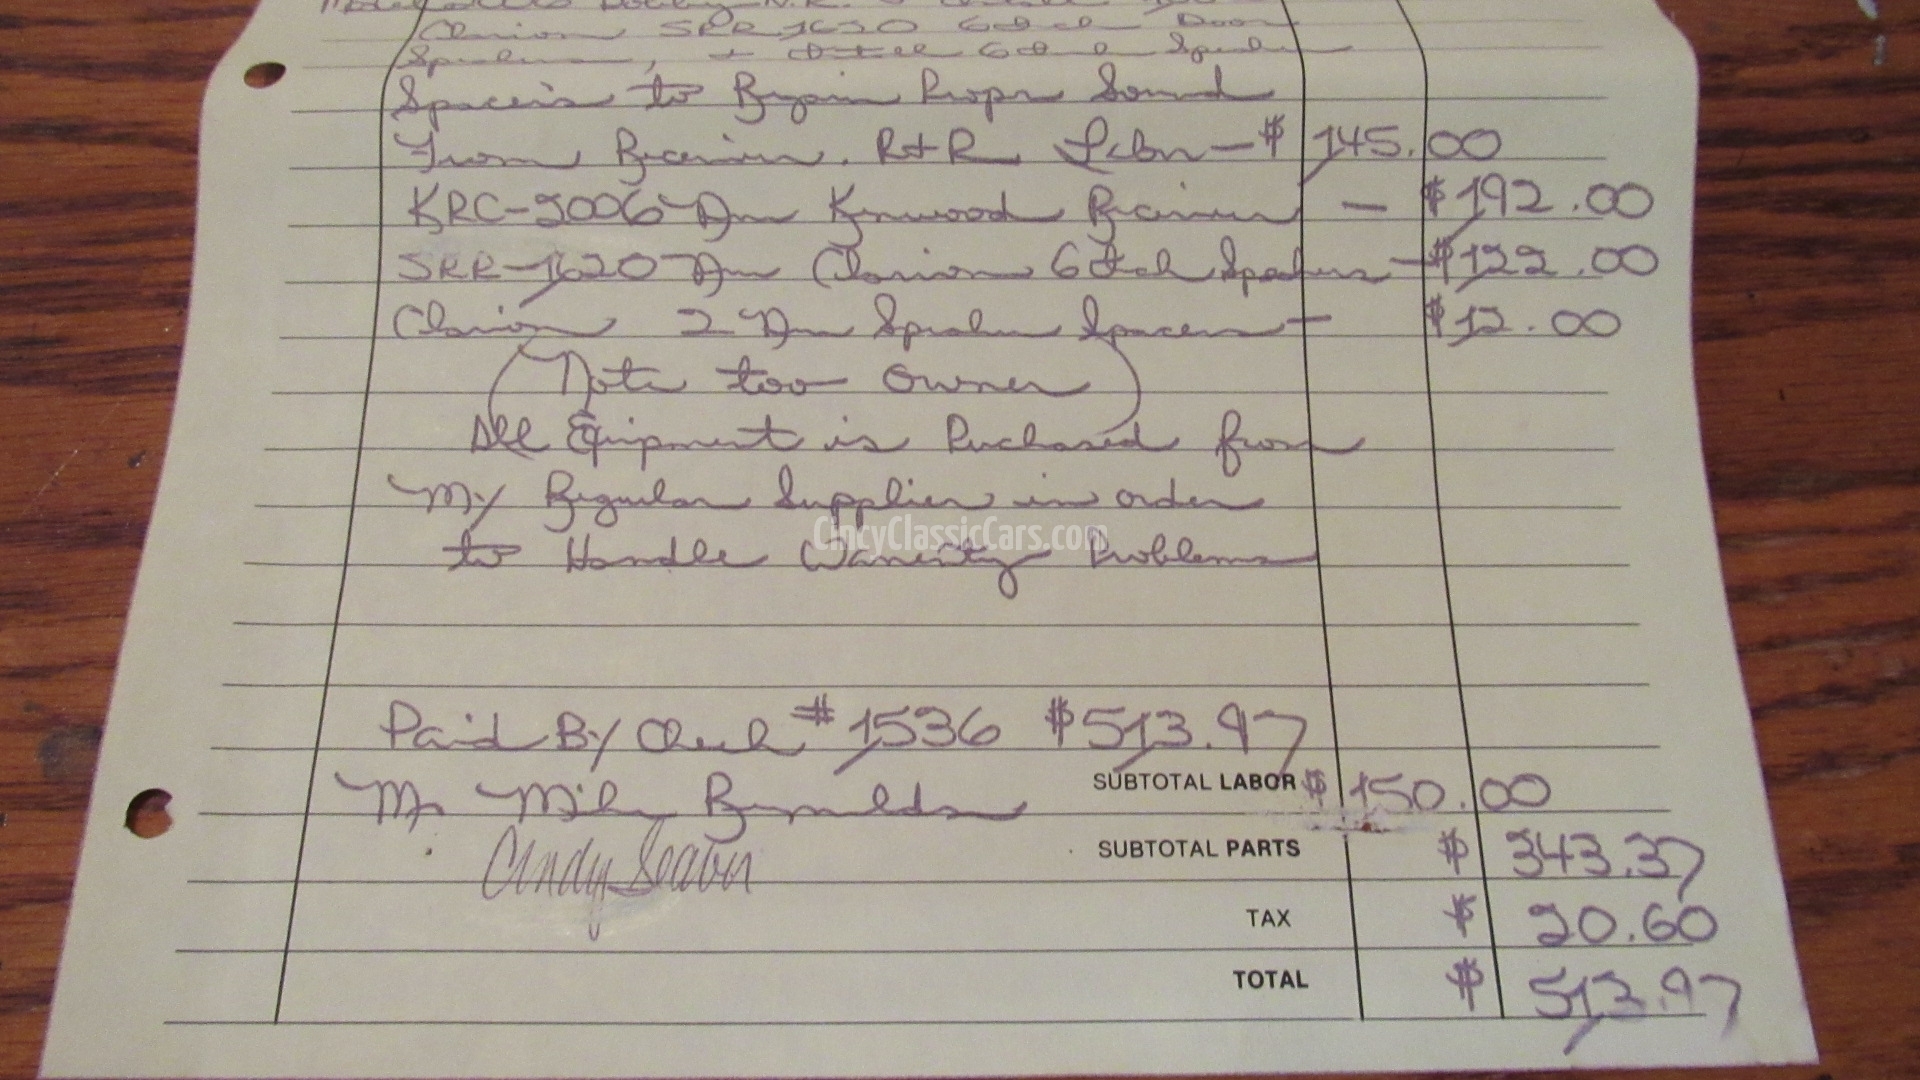 Clarion SRR 1620 6 Inch Door
Speakers, + Install 6 Inch Speaker
Spacers to Regain Propr Sound
From Receiver. R+R Labor - $145.00
KRC-2006 New Kenwood Receiver - $192.00
SRR-1620 New Clarion 6 Inch Speakers - $122.00
Clarion 2 New Speaker Spacers - $12.00
(Note too Owner)
All Equipment is Purchased from
My Regular Supplier in order
CincyClassicCars.com
to Handle Warrenty Problems
Paid By Check #1536 $513.97
SUBTOTAL LABOR $150.00
Mr Mike Reynolds
Cindy Seabur
SUBTOTAL PARTS $343.37
TAX $20.60
TOTAL $513.97